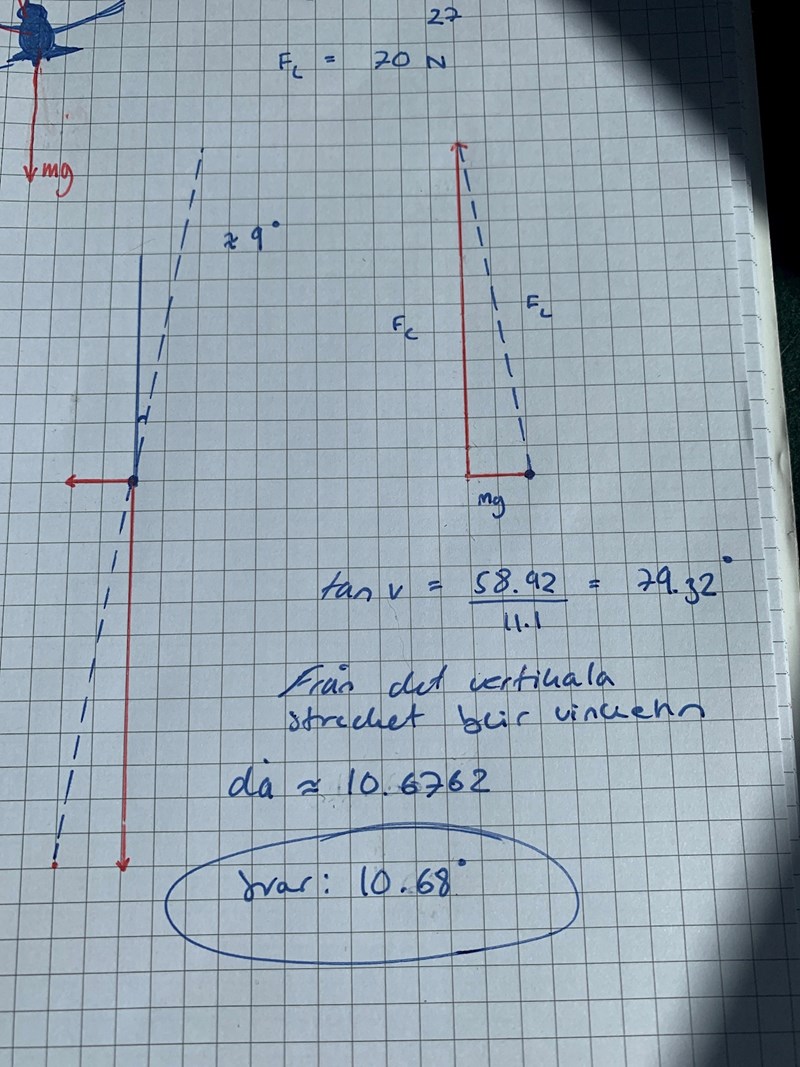 27
F_L = 70 N
mg
≈ 9°
F_c
F_L
mg
tan v = 58.92 / 11.1 = 79.32°
Från det vertikala
strecket blir vinkeln
då ≈ 10.6762
Svar: 10.68°